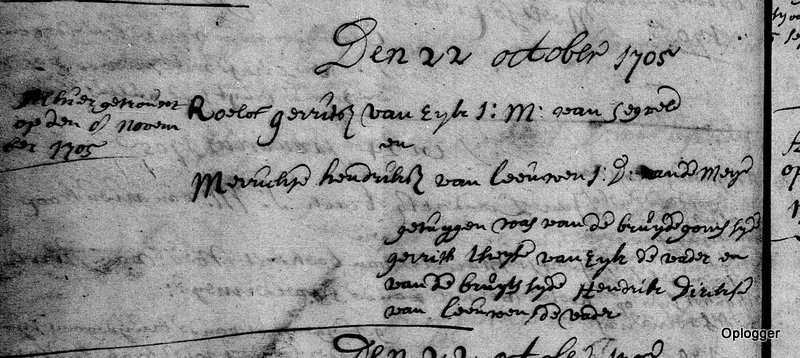 Den 22 october 1705
Alhier getrouwt
op den 8 Novem
ber 1705
Roelof gerritsz van Eyk J: M: van Segveld
en
Merrichje hendriksz van leeuwen J: D: van de Meye
getuygen was van de bruydegoms syde
gerrit theysse van Eyk de vader en
van de bruyts syde Hendrik Dirkse
van leeuwen de vader
Den 22 october 1705
Oplogger